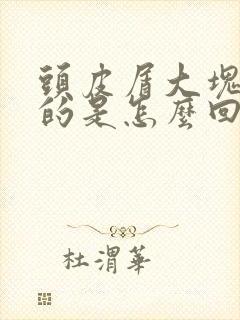 頭皮屑大塊
的是怎麼回
杜渭華